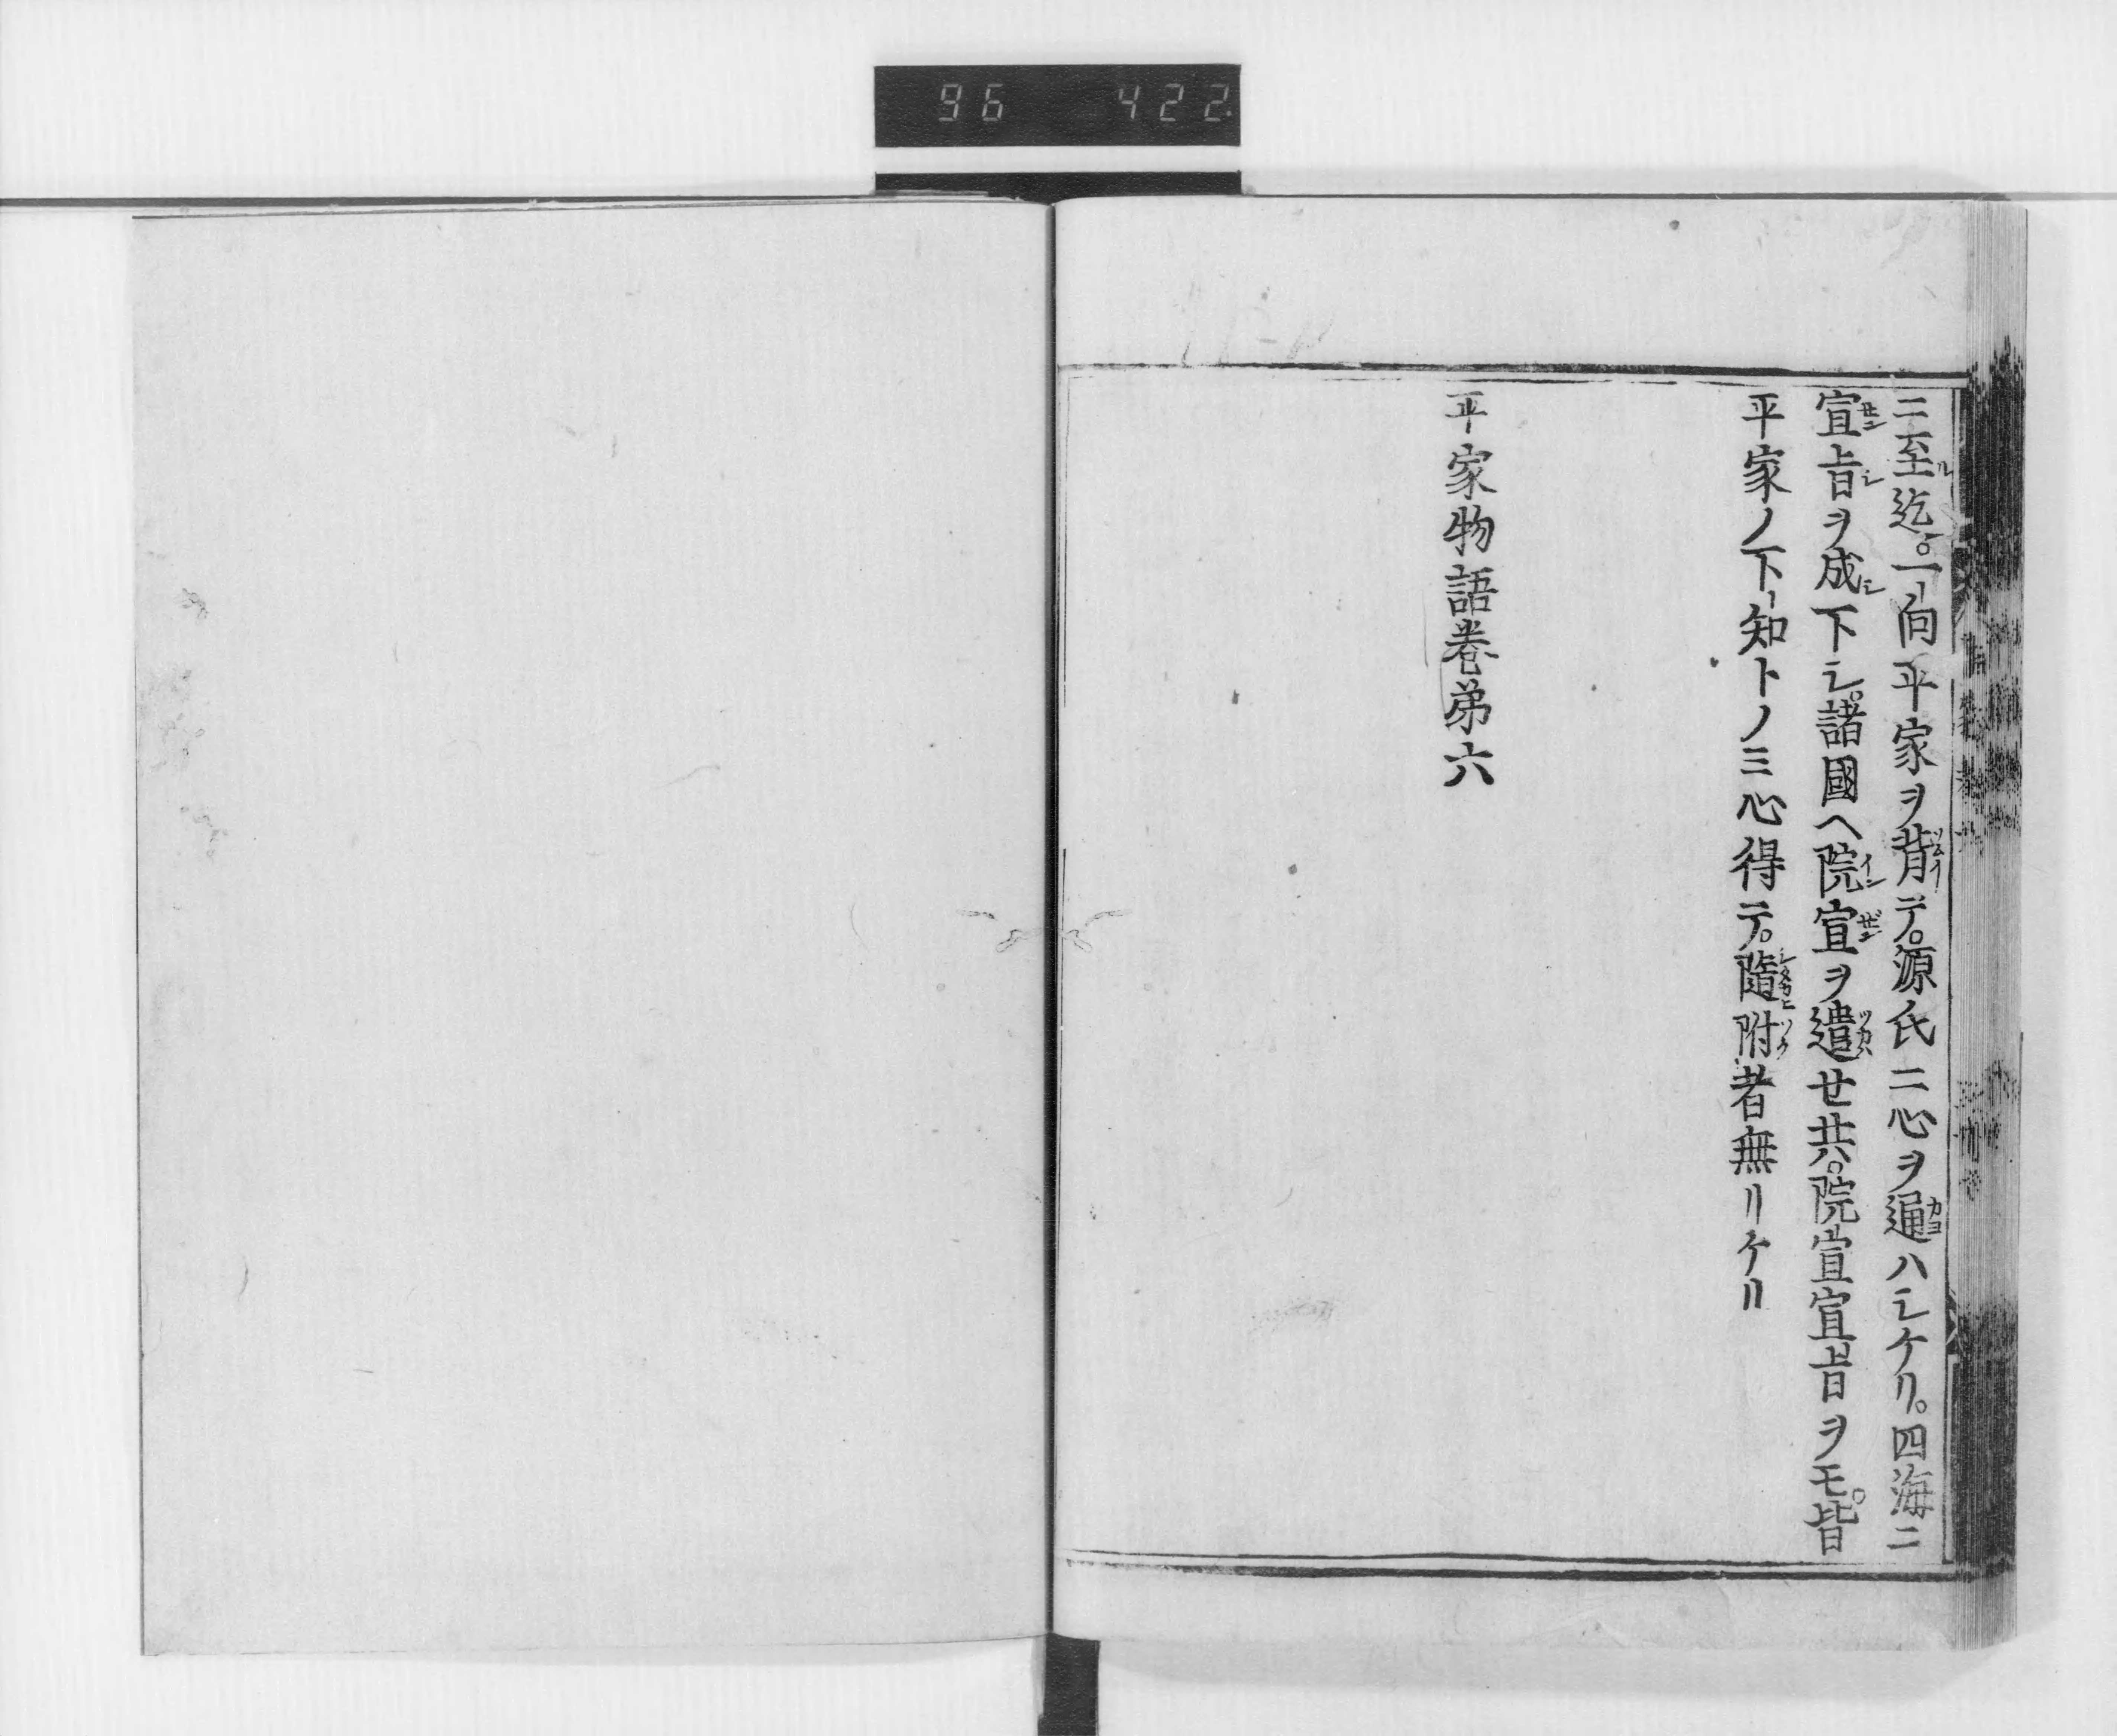 96 422
ニ至迄。一向平家ヲ背テ。源氏ニ心ヲ通ハシケリ。四海ニ
宣旨ヲ成下シ。諸國ヘ院宣ヲ遣せ共。院宣宣旨ヲモ。皆
平家ノ下知トノミ心得テ。隨附者無リケリ
平家物語巻第六